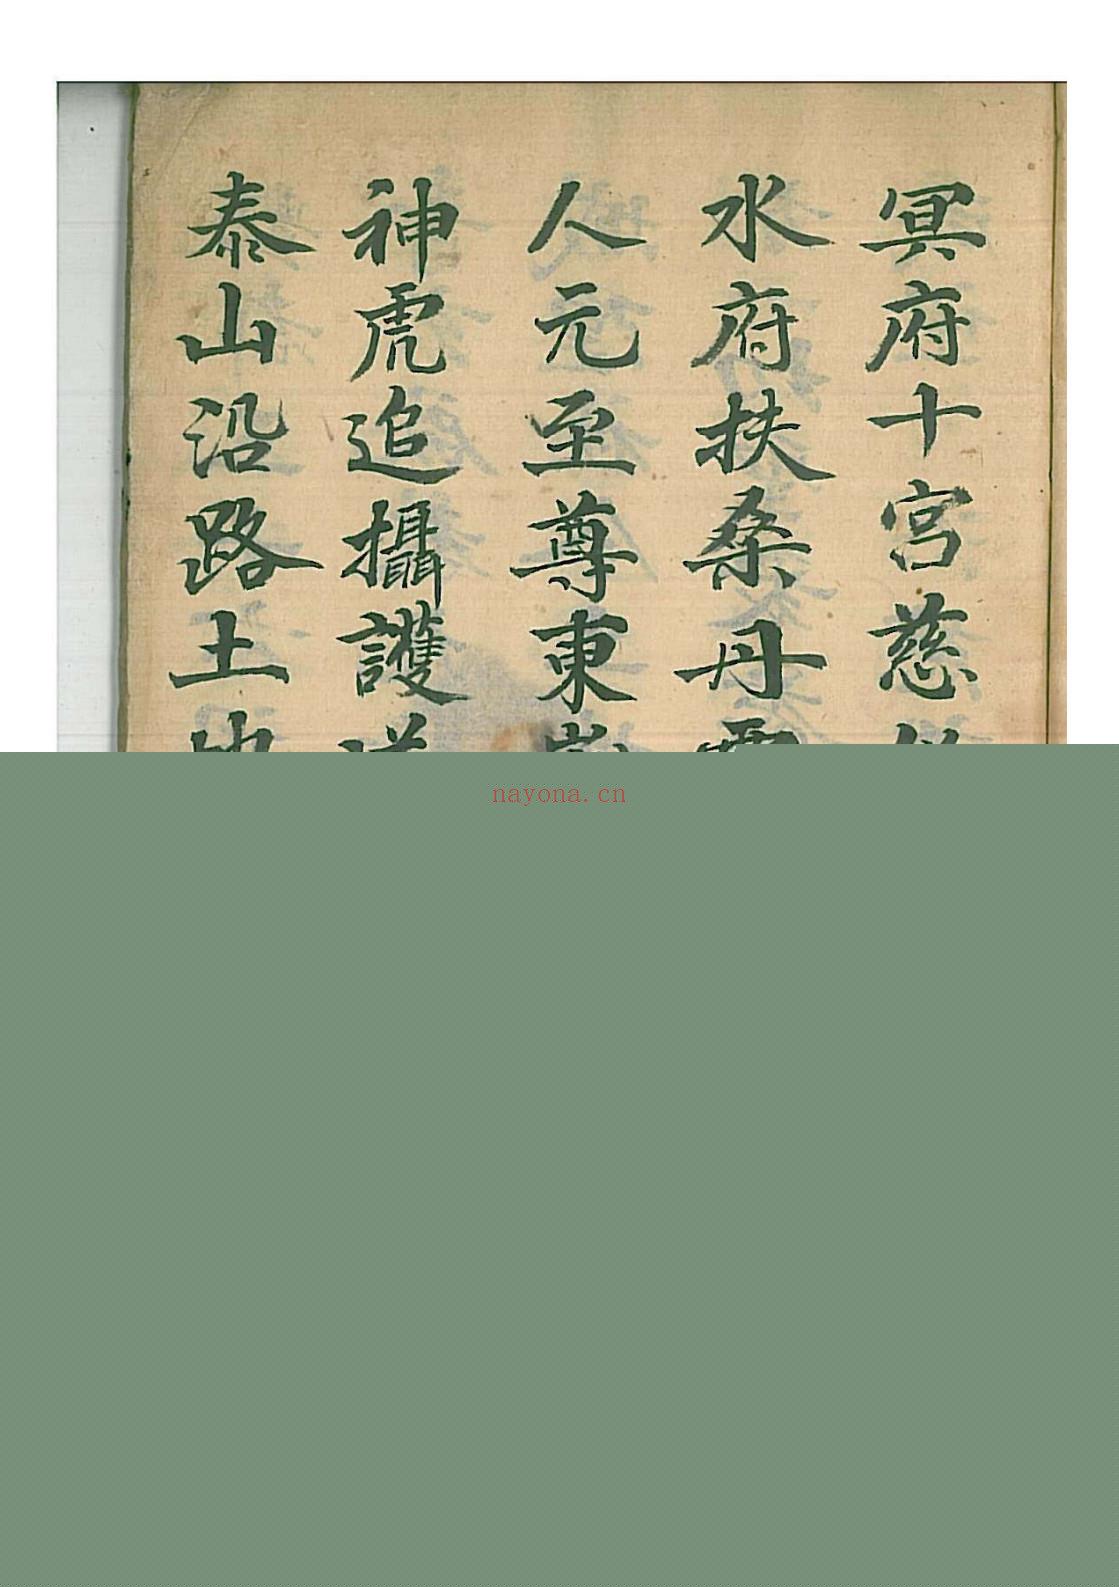 冥府十宮慈
水府扶桑丹
人元至尊東
神虎追攝護
泰山沿路土
nayona.cn